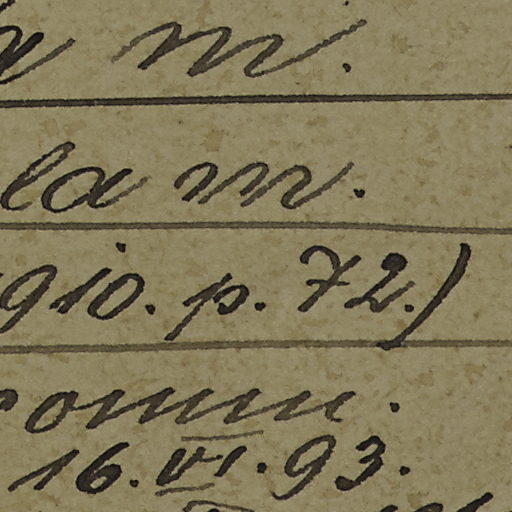 a m.
la m.
910. p. 72.)
comm.
16. VI. 93.